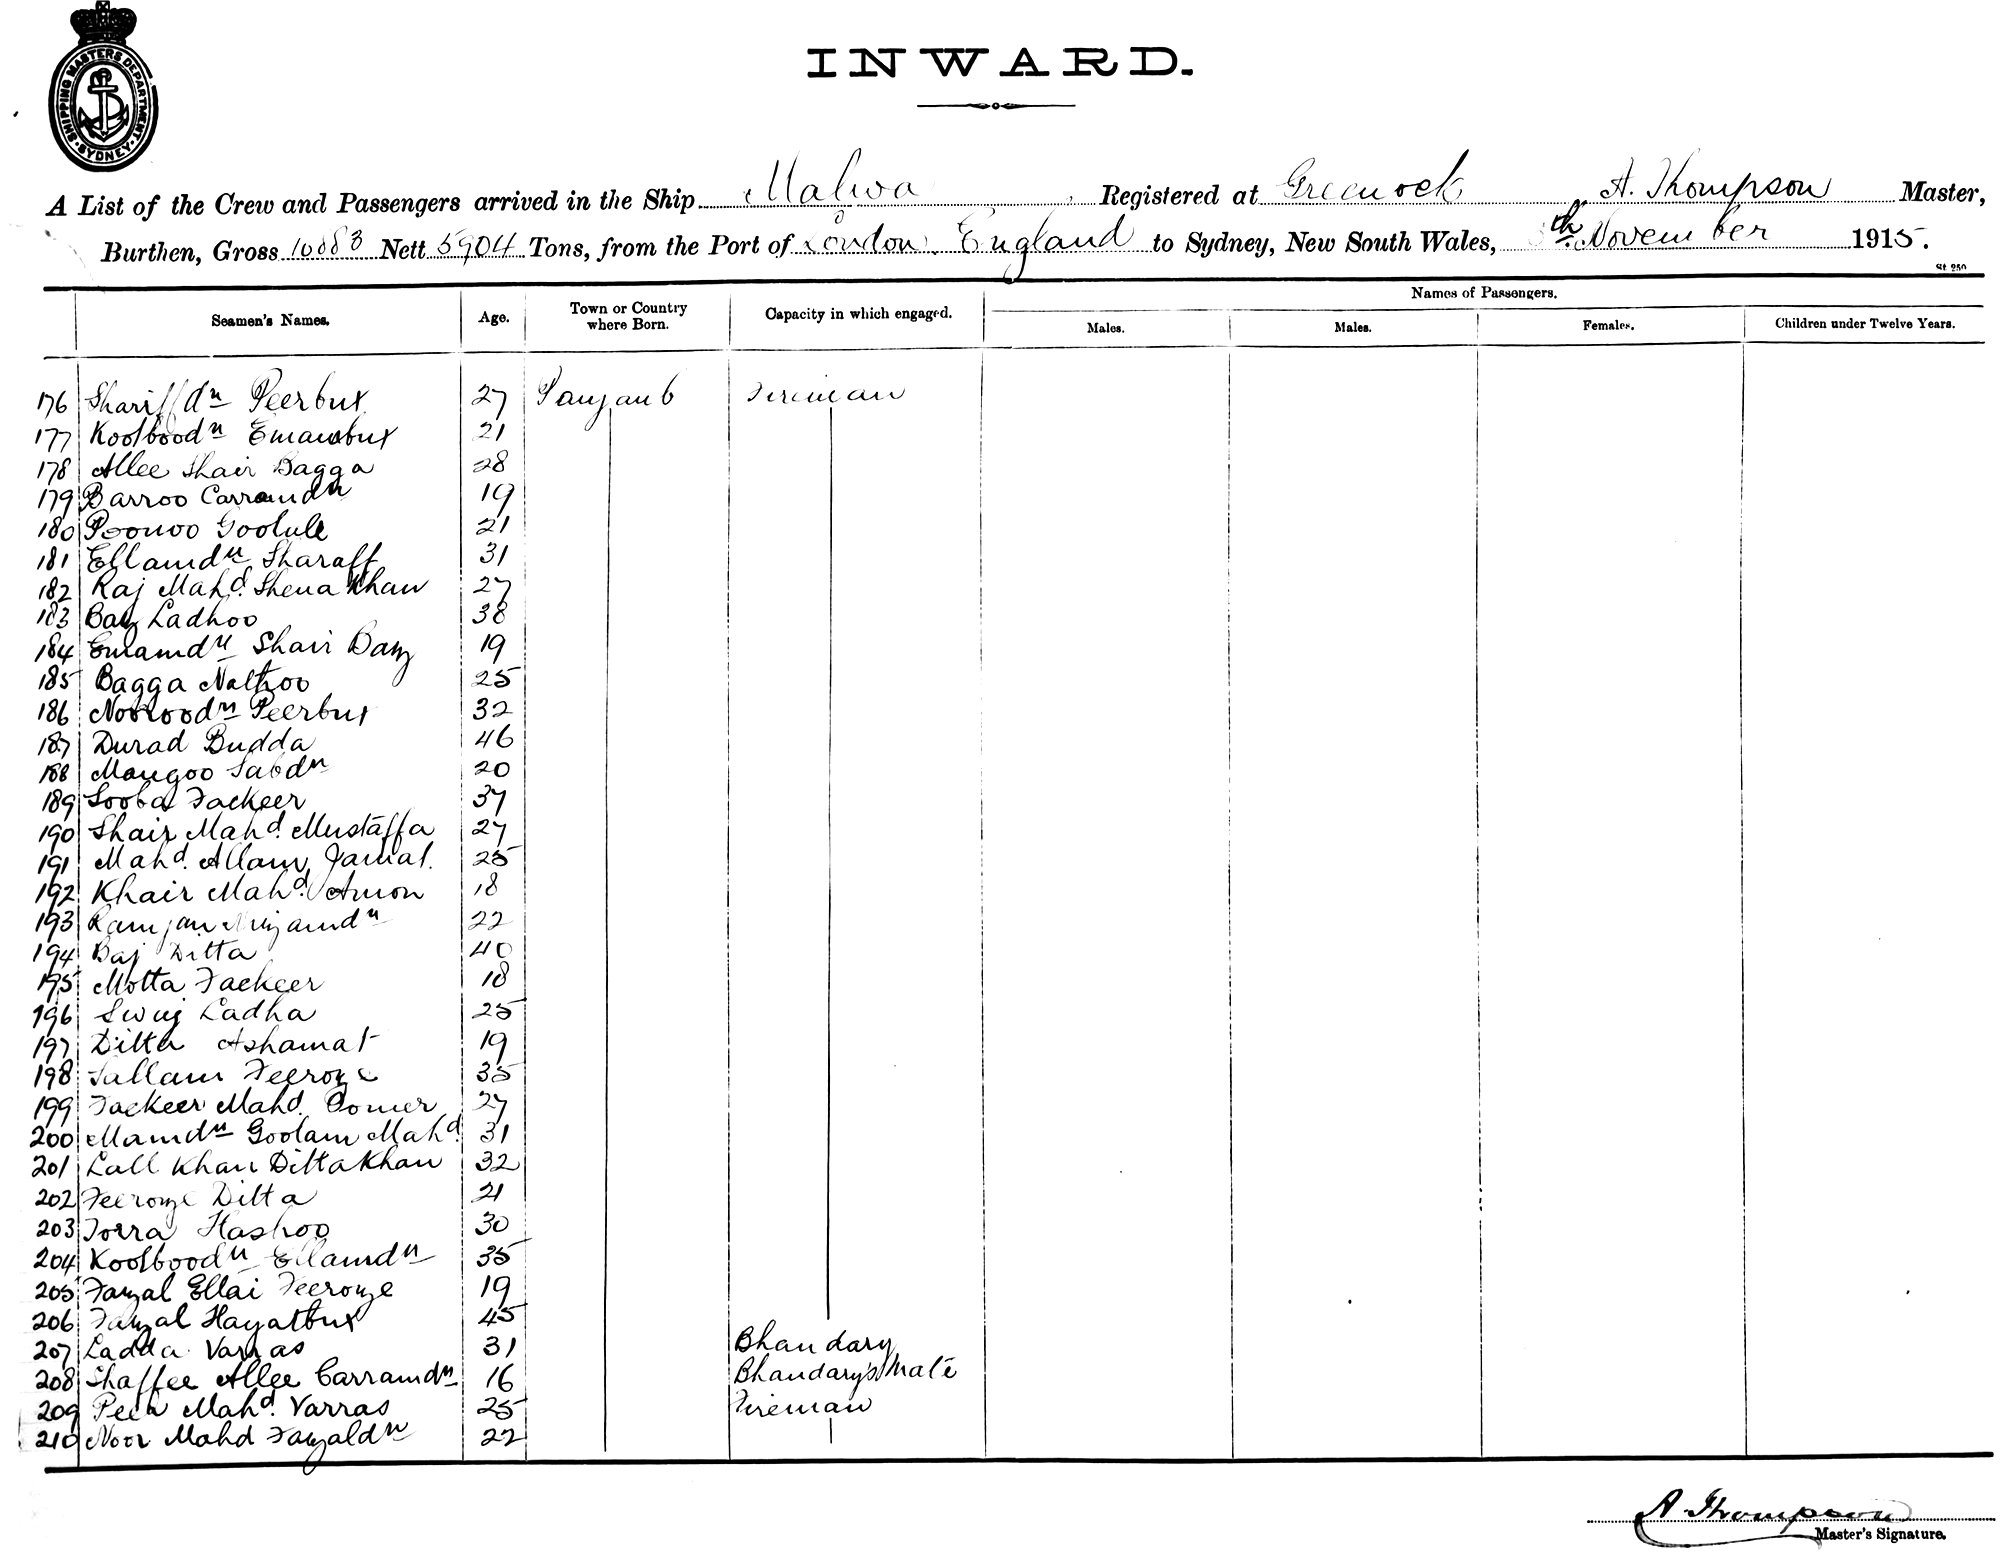 SHIPPING MASTERS DEPARTMENT
SYDNEY
INWARD.
A List of the Crew and Passengers arrived in the Ship Malwa, Registered at Greenock A. Thompson Master,
Burthen, Gross 10083 Nett 5904 Tons, from the Port of London England to Sydney, New South Wales, th November 1915.
St 250
Seamen's Names. Age. Town or Country where Born. Capacity in which engaged. Names of Passengers.
Males. Males. Females. Children under Twelve Years.
176 Shariffdn Peerbux 27 Panjaub Fireman
177 Kootboodn Emambux 21
178 Allee Shair Bagga 28
179 Barroo Carramdn 19
180 21
181 Ellamdn Sharaff 31
182 Raj Mahd. Shena Khan 27
183 Baz Ladhoo 38
184 Emamdn Shair Baz 19
185 Bagga Nathoo 25
186 Nooroodn Peerbux 32
187 Durad Budda 46
188 Mangoo Sabdn 20
189 Sooba Fackeer 37
190 Shair Mahd. Mustaffa 27
191 Mahd. Allam Jamal. 25
192 Khair Mahd. Amon 18
193 Ramjan 22
194 Baj Ditta 40
195 Motta Fackeer 18
196 Ladha 25
197 Ditta Ashamat 19
198 Sallam Feeroze 35
199 Fackeer Mahd. Oomer 27
200 Mamdn Goolam Mahd. 31
201 Lall Khan Ditta Khan 32
202 Feeroze Ditta 21
203 Torra Hashoo 30
204 Kootboodn Ellamdn 35
205 Fazal Ellai Feeroze 19
206 Fazal Hayatbux 45
207 Ladda Varras 31 Bhandary
208 Shaffee Allee Carramdn 16 Bhandary's Mate
209 Peer Mahd. Varras 25 Fireman
210 Noor Mahd Fazaldn 22
A. Thompson
Master's Signature.